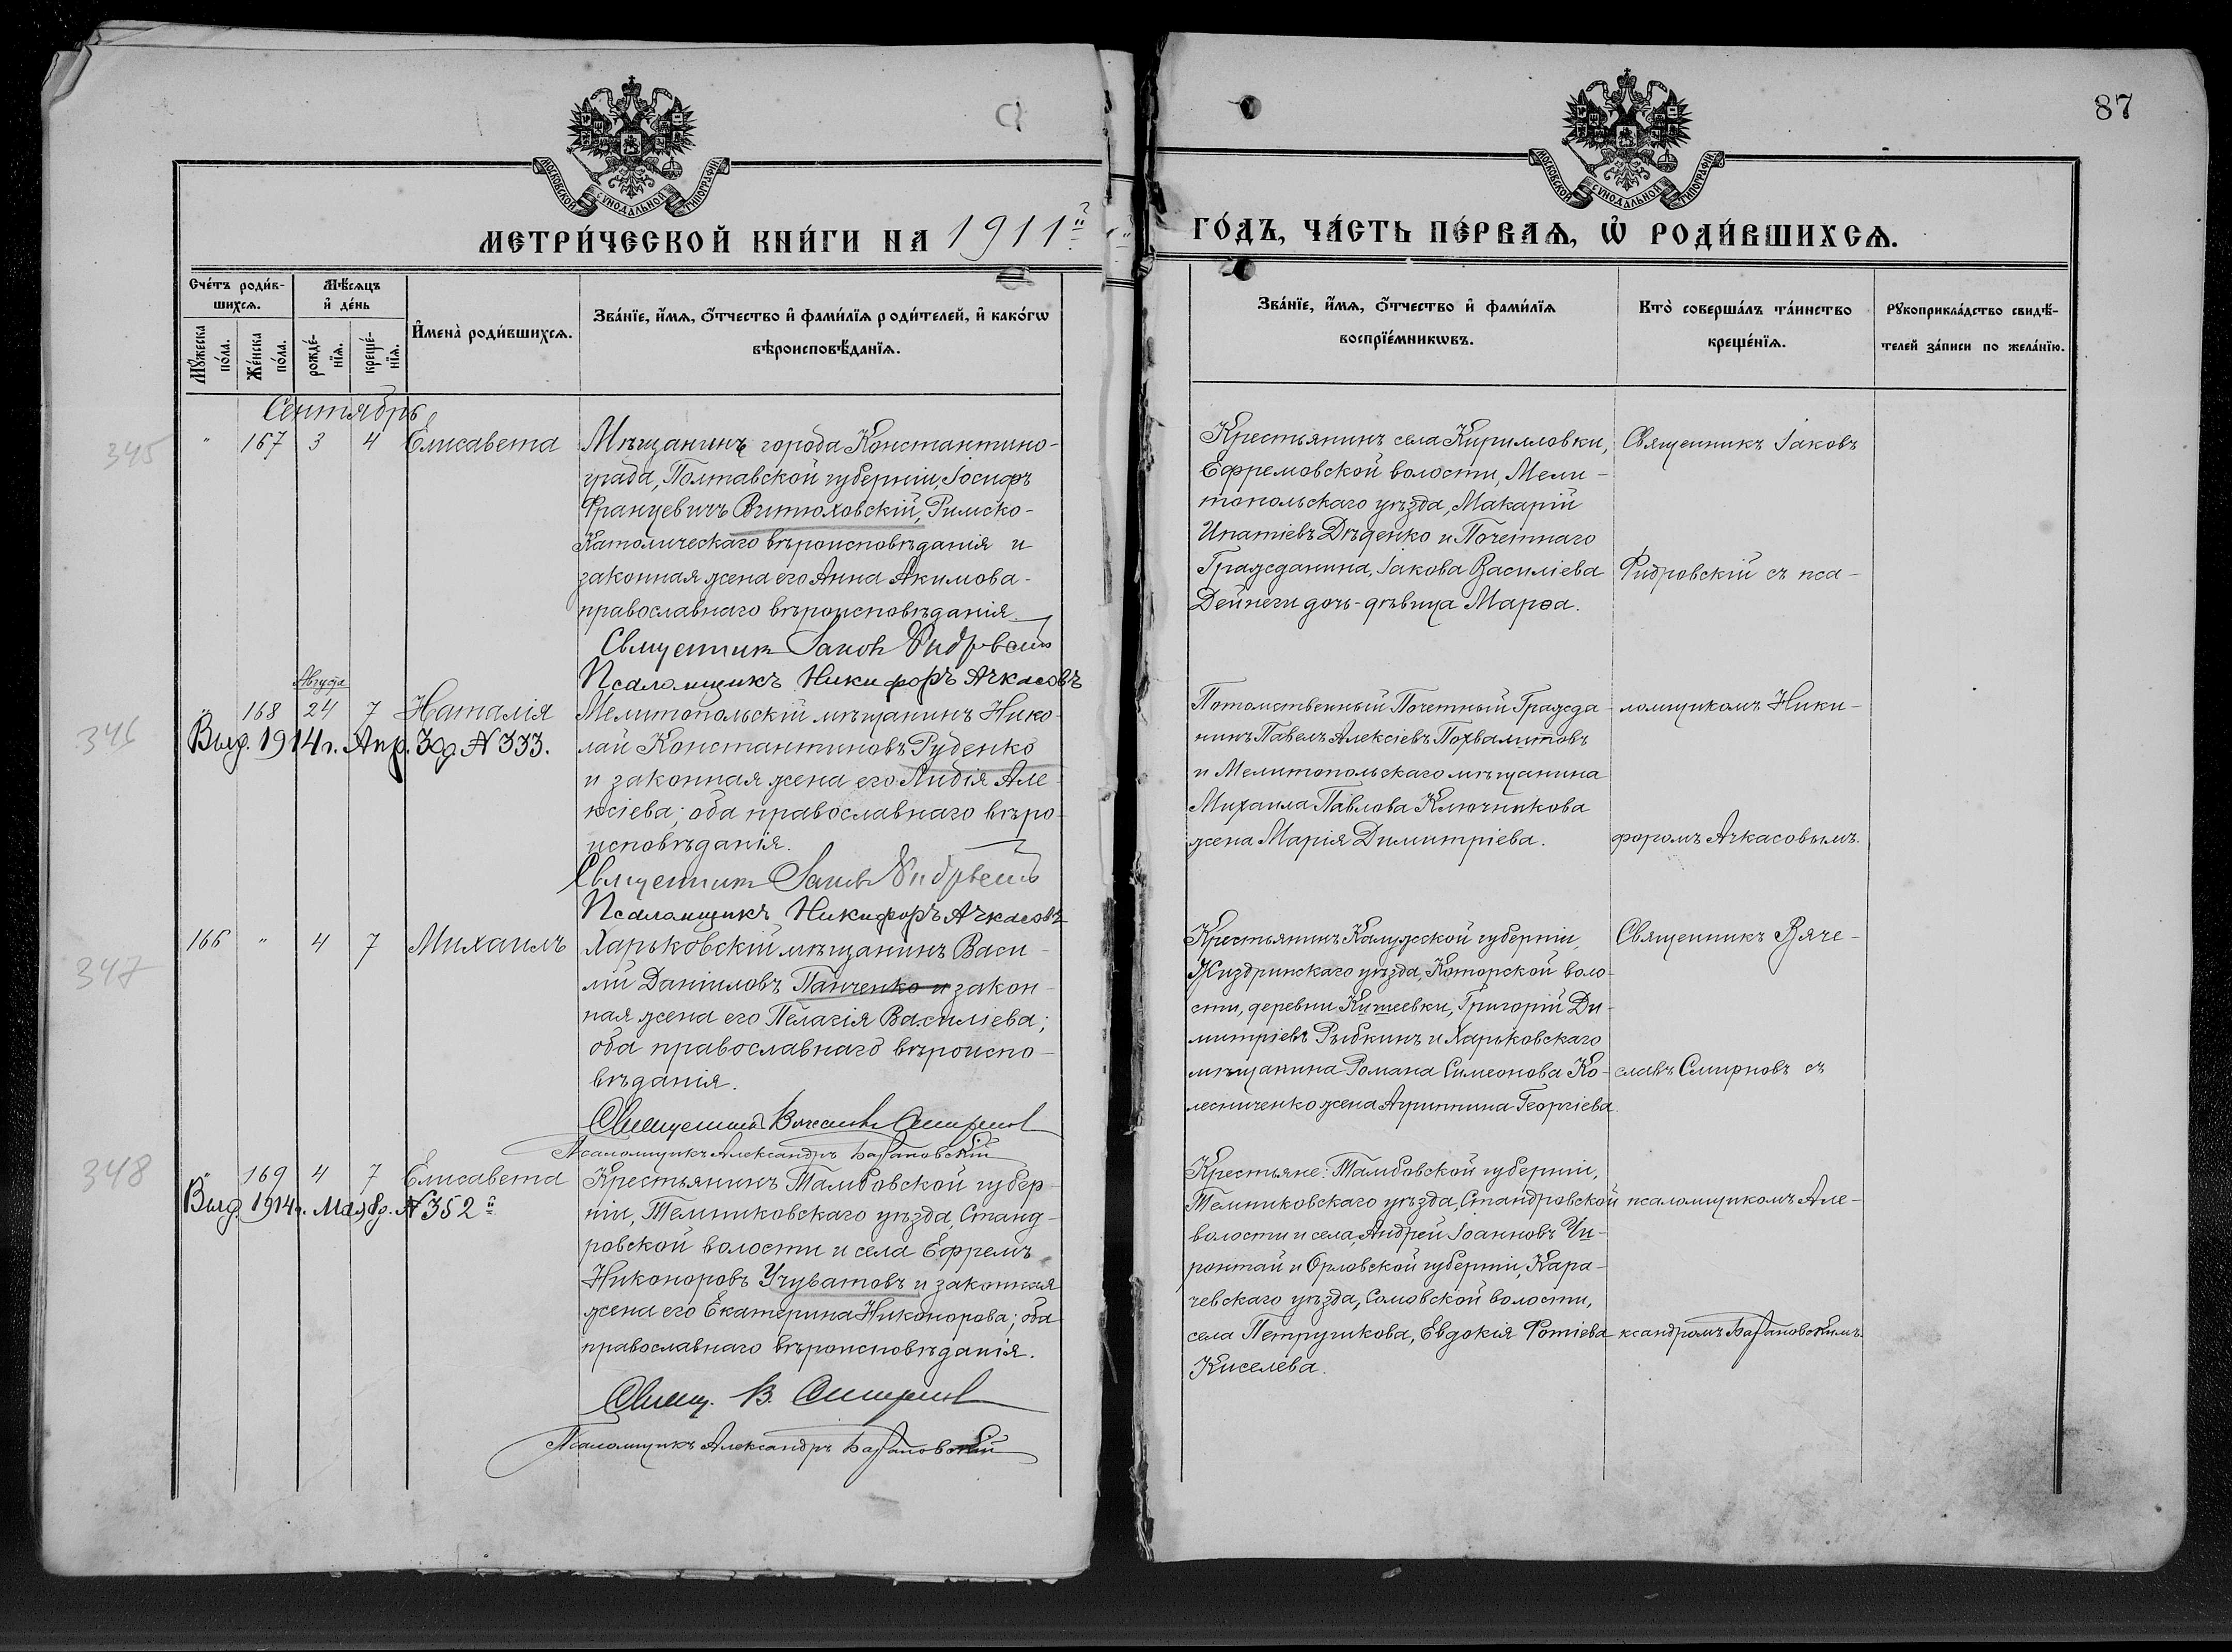 87
МОСКОВСКОЙ СѴНОДАЛЬНОЙ ТИПОГРАФІИ
МОСКОВСКОЙ СѴНОДАЛЬНОЙ ТИПОГРАФІИ
МЕТРИ́ЧЕСКОЙ КНИ́ГИ НА 1911й
ГО́ДЪ, ЧА́СТЬ ПЕ́РВАѦ, Ѡ҆ РОДИ́ВШИХСѦ.
Сче́тъ роди́в-
шихсѧ.
Мѣ́сѧцъ
и҆ де́нь
Мꙋ́жеска
по́ла.
Же́нска
по́ла.
рожде́-
нїѧ.
креще́-
нїѧ.
И҆мена̀ роди́вшихсѧ.
Зва́нїе, и҆́мѧ, ѻ҆́тчество и҆ фами́лїѧ роди́телей, и҆ како́гѡ
вѣроисповѣ́данїѧ.
Зва́нїе, и҆́мѧ, ѻ҆́тчество и҆ фами́лїѧ
воспрїе́мникѡвъ.
Кто̀ соверша́лъ та́инство
креще́нїѧ.
Рꙋкоприкла́дство свидѣ́-
телей за́писи по жела́нїю.
Сентябрь
345
" 167 3 4 Елисавета
Мѣщанинъ города Константино-
града, Полтавской губерніи, Іосифъ
Францевичъ Витюховскій, Римско-
Католическаго вѣроисповѣданія и
законная жена его Анна Акимова -
православнаго вѣроисповѣданія.
Священник Іаков
Псаломщикъ Никифоръ Ачкасовъ
Крестьянинъ села Кирилловки,
Ефремовской волости, Мели-
топольскаго уѣзда, Макарій
Ипатіевъ Дѣденко и Почетнаго
Гражданина, Іакова Василіева
Дейнеги дочь-дѣвица Марѳа.
Священникъ Іаковъ
Фидровскій съ пса-
346
Августа
" 168 24 7 Наталія
Выд. 1914 г. Апр. 3го д. № 333.
Мелитопольскій мѣщанинъ Нико-
лай Константиновъ Руденко
и законная жена его Лидія Але-
ксіева; оба православнаго вѣро-
исповѣданія.
Священник Іаков
Псаломщикъ Никифоръ Ачкасовъ
Потомственный Почетный Гражда-
нинъ Павелъ Алексіевъ Похвалитовъ
и Мелитопольскаго мѣщанина
Михаила Павлова Ключникова
жена Марія Димитріева.
ломщикомъ Ники-
форомъ Ачкасовымъ.
347
166 " 4 7 Михаилъ
Харьковскій мѣщанинъ Васи-
лій Даніиловъ Панченко и закон-
ная жена его Пелагія Василіева;
оба православнаго вѣроиспо-
вѣданія.
Священник Вячеслав Смирнов
Псаломщикъ Александръ Барановскій
Крестьянинъ Калужской губерніи,
Жиздринскаго уѣзда, Которской воло-
сти, деревни Китеевки, Григорій Ди-
митріевъ Рыбкинъ и Харьковскаго
мѣщанина Романа Симеонова Ко-
лесниченко жена Агриппина Георгіева.
Священникъ Вяче-
славъ Смирновъ съ
348
" 169 4 7 Елисавета
Выд. 1914 г. Мая 8 д. № 352й
Крестьянинъ Тамбовской губер-
ніи, Темниковскаго уѣзда, Станд-
ровской волости и села Ефремъ
Никоноровъ Учуватовъ и законная
жена его Екатерина Никонорова; оба
православнаго вѣроисповѣданія.
Свящ. В. Смирнов
Псаломщикъ Александръ Барановскій
Крестьяне: Тамбовской губерніи,
Темниковскаго уѣзда, Стандровской
волости и села, Андрей Іоанновъ Чи-
ронтай и Орловской губерніи, Кара-
чевскаго уѣзда, Сомовской волости,
села Петрушкова, Евдокія Фотіева
Киселева.
псаломщикомъ Але-
ксандромъ Барановскимъ.